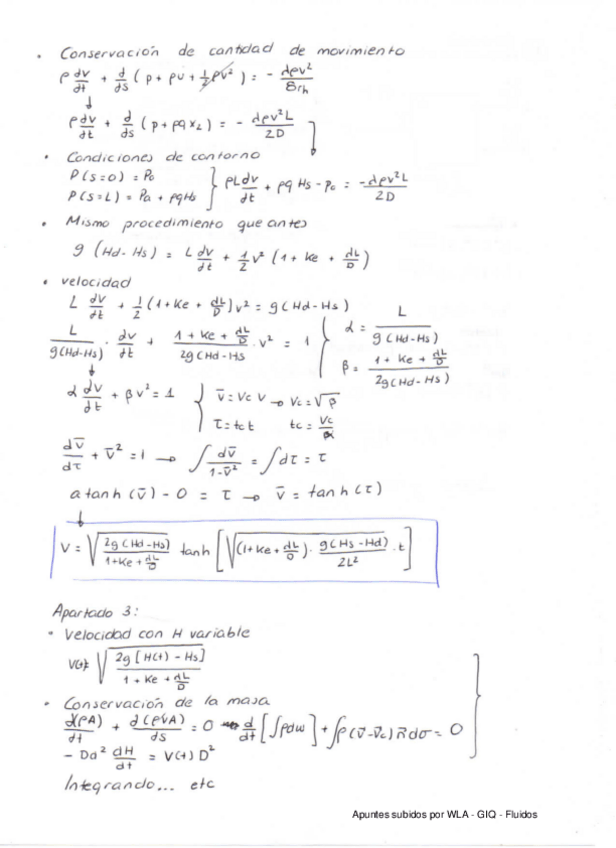 • Conservación de cantidad de movimiento
ρ dv/dt + d/ds (p + ρU + 1/2 ρv²) = - λρv²/8rh
ρ dv/dt + d/ds (p + ρg x₂) = - λρv²L/2D
• Condiciones de contorno
P(s=0) = Po
P(s=L) = Pa + ρgHs } ρL dv/dt + ρg Hs - po = -λρv²L/2D
• Mismo procedimiento que antes
g (Hd - Hs) = L dv/dt + 1/2 v² (1 + Ke + λL/D)
• velocidad
L dv/dt + 1/2 (1 + Ke + λL/D) v² = g(Hd - Hs)
L/g(Hd-Hs) · dv/dt + 1 + Ke + λL/D / 2g(Hd-Hs · v² = 1 { α = L/g(Hd-Hs)
β = 1 + Ke + λL/D / 2g(Hd-Hs)
α dv/dt + βv² = 1 { v̄ = Vc v → Vc = √β
τ = tc t tc = Vc/α
dv̄/dτ + v̄² = 1 → ∫ dv̄/1-v̄² = ∫dτ = τ
atanh (v̄) - 0 = τ → v̄ = tanh(τ)
V = √(2g(Hd-Hs)/1+Ke+λL/D) tanh [√((1+Ke+λL/D) · g(Hs-Hd)/2L²) · t]
Apartado 3:
• Velocidad con H variable
V(t) = √(2g[H(t) - Hs]/1 + Ke + λL/D)
• Conservación de la masa
∂(ρA)/∂t + ∂(ρVA)/∂s = 0 → d/dt [∫ρdω] + ∫ρ(v̄-v̄c)n̄dσ = 0
- Da² dH/dt = V(t) D²
Integrando... etc
Apuntes subidos por WLA - GIQ - Fluidos